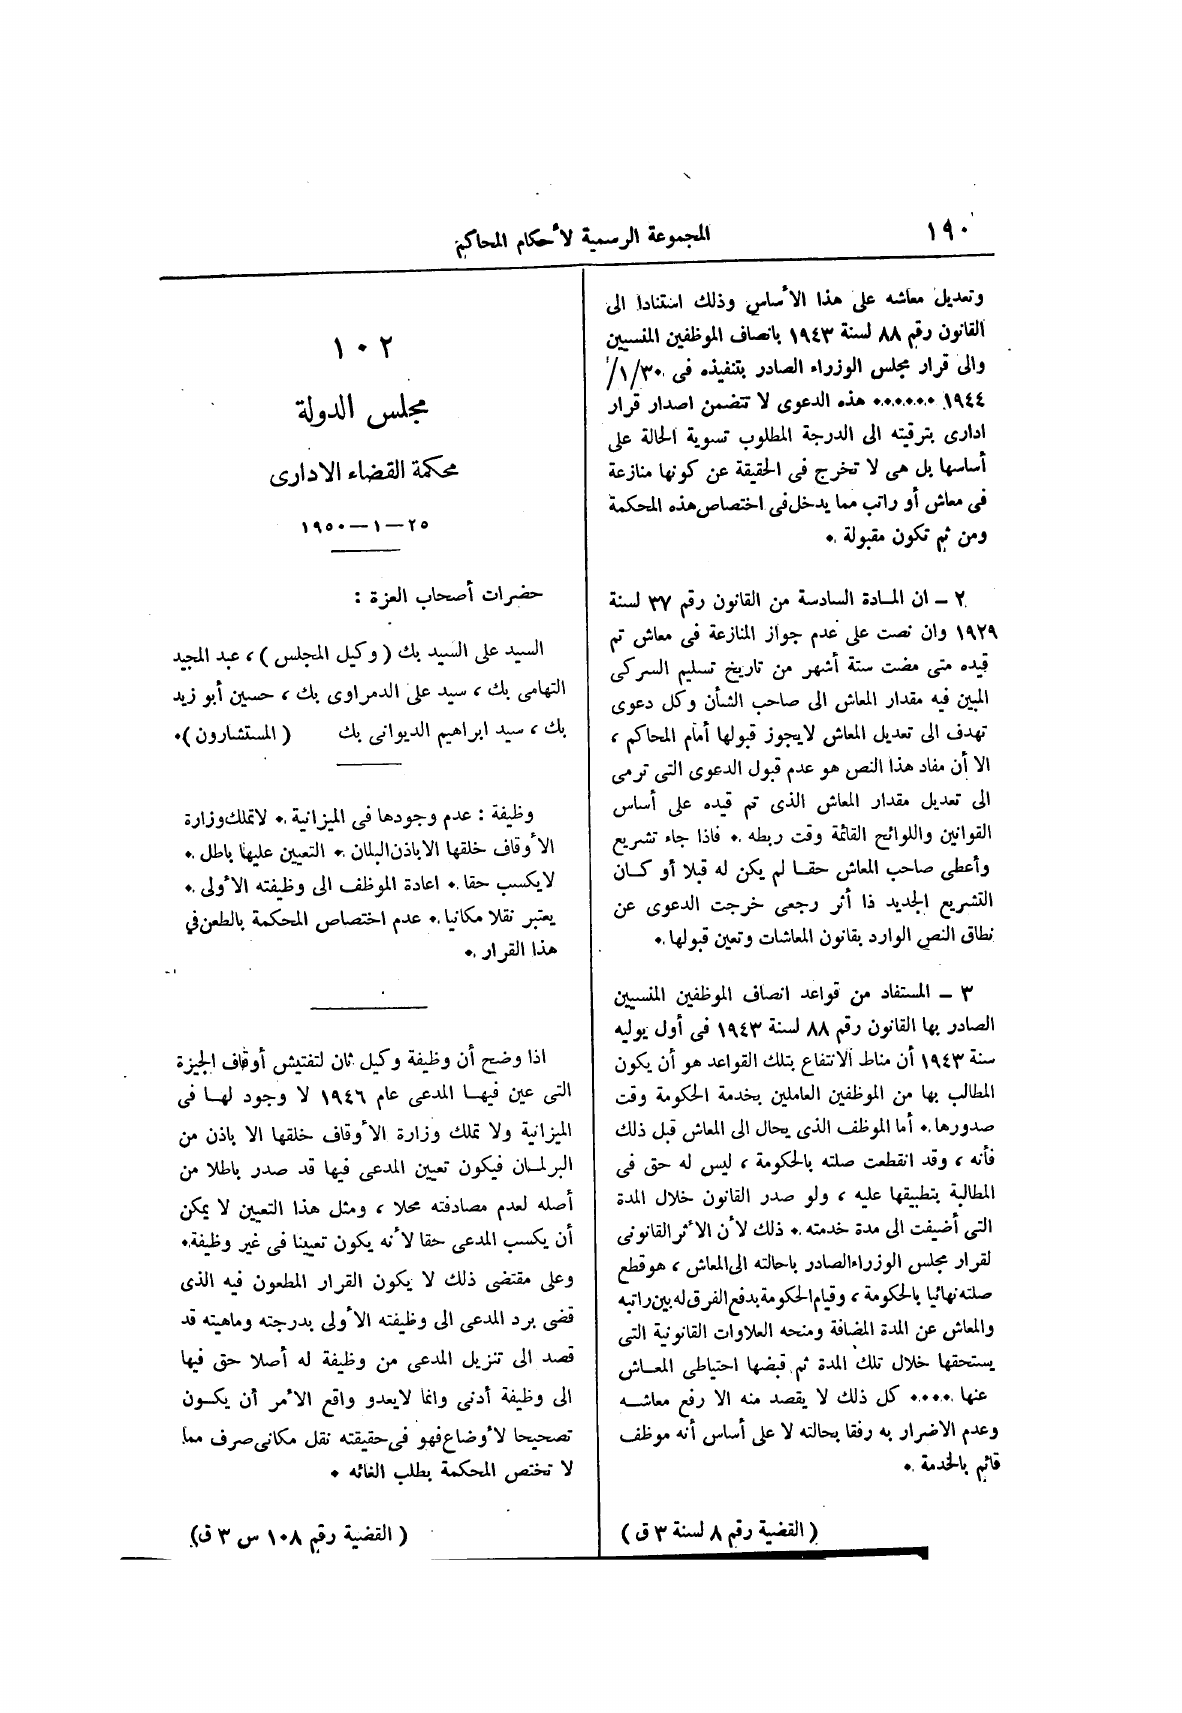 ١٩٠
المجموعة الرسمية لأحكام المحاكم
وتعديل معاشه على هذا الأساس وذلك استنادا الى
القانون رقم ٨٨ لسنة ١٩٤٣ بانصاف الموظفين المنسيين
والى قرار مجلس الوزراء الصادر بتنفيذه فى ٣٠/١/
١٩٤٤ ...... هذه الدعوى لا تتضمن اصدار قرار
ادارى بترقيته الى الدرجة المطلوب تسوية الحالة على
أساسها بل هى لا تخرج فى الحقيقة عن كونها منازعة
فى معاش أو راتب مما يدخل فى اختصاص هذه المحكمة
ومن ثم تكون مقبولة .
٢ - ان المادة السادسة من القانون رقم ٣٧ لسنة
١٩٢٩ وان نصت على عدم جواز المنازعة فى معاش تم
قيده متى مضت ستة أشهر من تاريخ تسليم السركى
المبين فيه مقدار المعاش الى صاحب الشأن وكل دعوى
تهدف الى تعديل المعاش لايجوز قبولها أمام المحاكم ،
الا أن مفاد هذا النص هو عدم قبول الدعوى التى ترمى
الى تعديل مقدار المعاش الذى تم قيده على أساس
القوانين واللوائح القائمة وقت ربطه . فاذا جاء تشريع
وأعطى صاحب المعاش حقا لم يكن له قبلا أو كان
التشريع الجديد ذا أثر رجعى خرجت الدعوى عن
نطاق النص الوارد بقانون المعاشات وتعين قبولها .
٣ - المستفاد من قواعد انصاف الموظفين المنسيين
الصادر بها القانون رقم ٨٨ لسنة ١٩٤٣ فى أول يوليه
سنة ١٩٤٣ أن مناط الانتفاع بتلك القواعد هو أن يكون
المطالب بها من الموظفين العاملين بخدمة الحكومة وقت
صدورها . أما الموظف الذى يحال الى المعاش قبل ذلك
فأنه ، وقد انقطعت صلته بالحكومة ، ليس له حق فى
المطالبة بتطبيقها عليه ، ولو صدر القانون خلال المدة
التى أضيفت الى مدة خدمته . ذلك لأن الأثر القانونى
لقرار مجلس الوزراء الصادر باحالته الى المعاش ، هو قطع
صلته نهائيا بالحكومة ، وقيام الحكومة بدفع الفرق له بين راتبه
والمعاش عن المدة المضافة ومنحه العلاوات القانونية التى
يستحقها خلال تلك المدة ثم قبضها احتياطى المعاش
عنها .... كل ذلك لا يقصد منه الا رفع معاشه
وعدم الاضرار به رفقا بحالته لا على أساس أنه موظف
قائم بالخدمة .
( القضية رقم ٨ لسنة ٣ ق )
١٠٢
مجلس الدولة
محكمة القضاء الادارى
٢٥ – ١ – ١٩٥٠
حضرات أصحاب العزة :
السيد على السيد بك ( وكيل المجلس ) ، عبد المجيد
التهامى بك ، سيد على الدمراوى بك ، حسين أبو زيد
بك ، سيد ابراهيم الديوانى بك ( المستشارون ) .
وظيفة : عدم وجودها فى الميزانية . لاتملك وزارة
الأوقاف خلقها الا باذن البلمان . التعيين عليها باطل .
لايكسب حقا . اعادة الموظف الى وظيفته الأولى .
يعتبر نقلا مكانيا . عدم اختصاص المحكمة بالطعن فى
هذا القرار .
اذا وضح أن وظيفة وكيل ثان لتفتيش أوقاف الجيزة
التى عين فيها المدعى عام ١٩٤٦ لا وجود لها فى
الميزانية ولا تملك وزارة الأوقاف خلقها الا باذن من
البرلمان فيكون تعيين المدعى فيها قد صدر باطلا من
أصله لعدم مصادفته محلا ، ومثل هذا التعيين لا يمكن
أن يكسب المدعى حقا لأنه يكون تعيينا فى غير وظيفة .
وعلى مقتضى ذلك لا يكون القرار المطعون فيه الذى
قضى برد المدعى الى وظيفته الأولى بدرجته وماهيته قد
قصد الى تنزيل المدعى من وظيفة له أصلا حق فيها
الى وظيفة أدنى وانما لايعدو واقع الأمر أن يكون
تصحيحا لأوضاع فهو فى حقيقته نقل مكانى صرف مما
لا تختص المحكمة بطلب الغائه .
( القضية رقم ١٠٨ س ٣ ق )